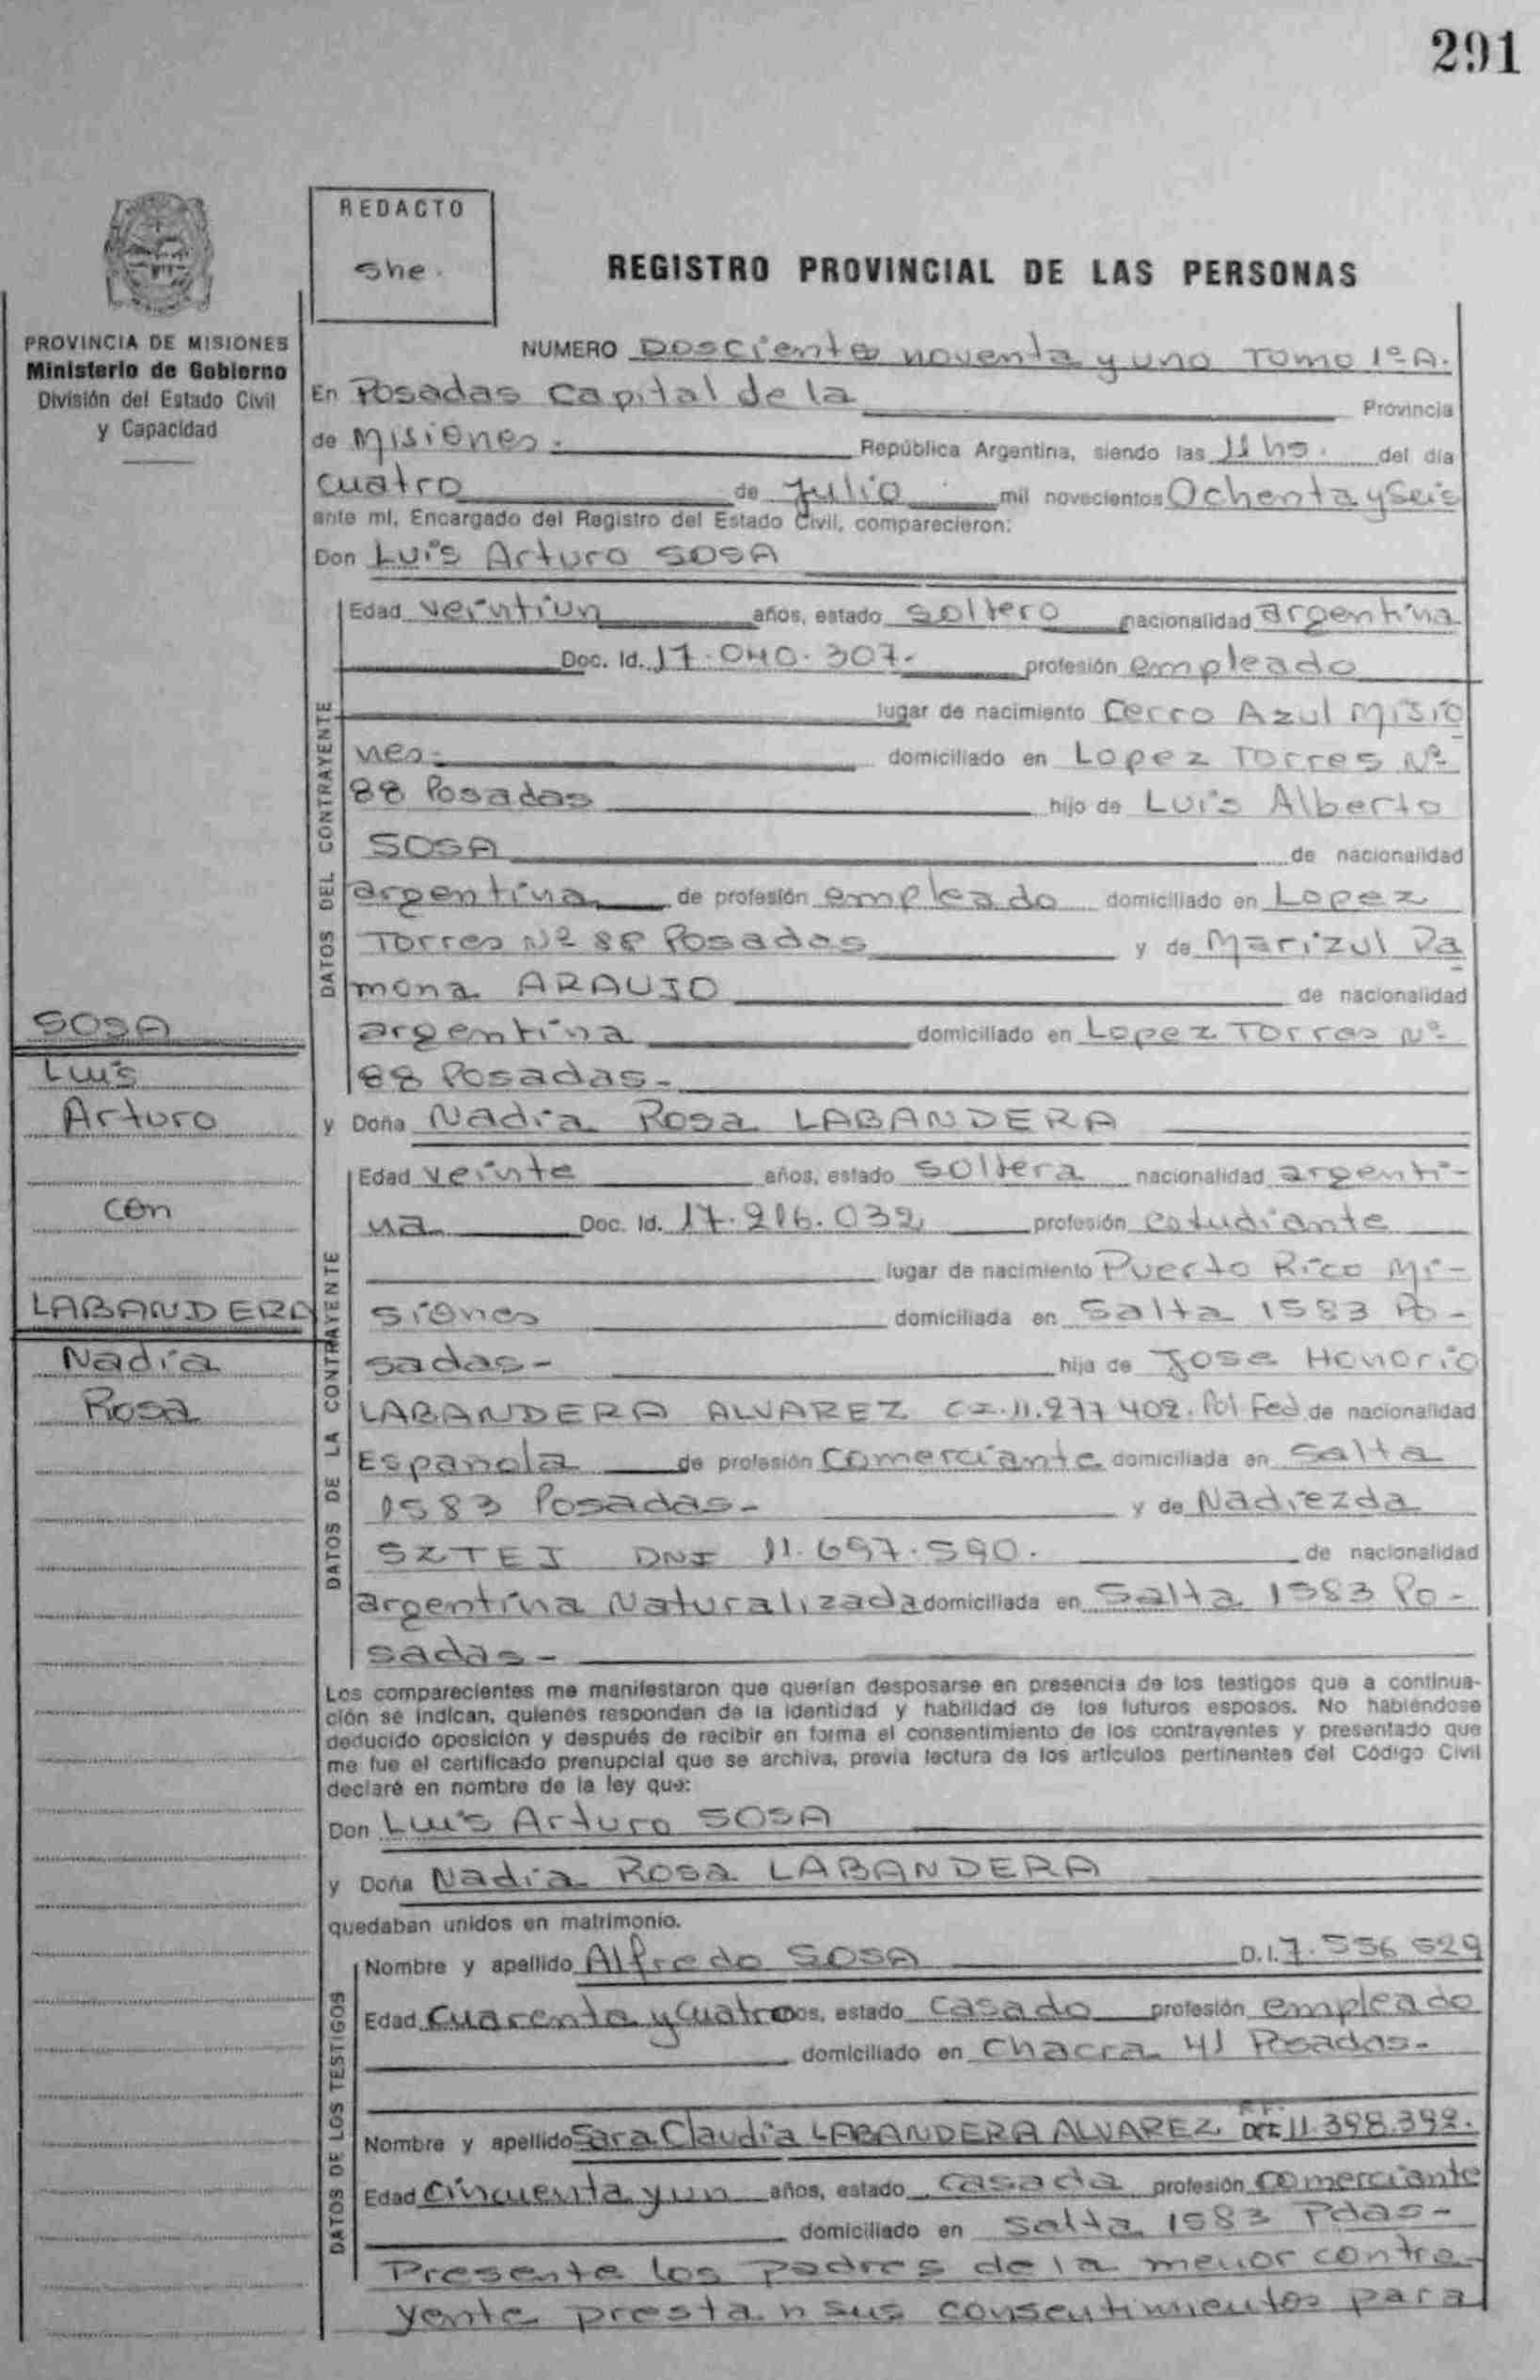 291
REDACTO
she.
REGISTRO PROVINCIAL DE LAS PERSONAS
PROVINCIA DE MISIONES
Ministerio de Gobierno
División del Estado Civil
y Capacidad
NUMERO Doscientos noventa y uno Tomo 1º A.
En Posadas Capital de la Provincia
de Misiones. República Argentina, siendo las 11 hs. del día
cuatro de Julio mil novecientos Ochenta y Seis
ante mí, Encargado del Registro del Estado Civil, comparecieron:
Don Luis Arturo SOSA
DATOS DEL CONTRAYENTE
Edad veintiun años, estado soltero nacionalidad argentina
Doc. Id. 17.040.307.- profesión empleado
lugar de nacimiento Cerro Azul Misio
nes.- domiciliado en Lopez Torres Nº
88 Posadas hijo de Luis Alberto
SOSA de nacionalidad
argentina de profesión empleado domiciliado en Lopez
Torres Nº 88 Posadas y de Marizul Ra
mona ARAUJO de nacionalidad
argentina domiciliado en Lopez Torres Nº
88 Posadas-
y Doña Nadia Rosa LABANDERA
SOSA
Luis
Arturo
con
LABANDERA
Nadia
Rosa
DATOS DE LA CONTRAYENTE
Edad veinte años, estado soltera nacionalidad argenti-
na Doc. Id. 17.216.032 profesión estudiante
lugar de nacimiento Puerto Rico Mi-
siones domiciliada en Salta 1583 Po-
sadas- hija de Jose Honorio
LABANDERA ALVAREZ CI. 11.277 402. Pol Fed de nacionalidad
Española de profesión Comerciante domiciliada en Salta
1583 Posadas- y de Nadiezda
SZTEJ DNI 11.697.590. de nacionalidad
argentina Naturalizada domiciliada en Salta 1583 Po-
sadas-
Los comparecientes me manifestaron que querían desposarse en presencia de los testigos que a continua-
ción se indican, quienes responden de la identidad y habilidad de los futuros esposos. No habiéndose
deducido oposición y después de recibir en forma el consentimiento de los contrayentes y presentado que
me fue el certificado prenupcial que se archiva, previa lectura de los artículos pertinentes del Código Civil
declaré en nombre de la ley que:
Don Luis Arturo SOSA
y Doña Nadia Rosa LABANDERA
quedaban unidos en matrimonio.
DATOS DE LOS TESTIGOS
Nombre y apellido Alfredo SOSA D.I. 7.556 529
Edad Cuarenta y cuatro años, estado casado profesión empleado
domiciliado en Chacra 41 Posadas-
Nombre y apellido Sara Claudia LABANDERA ALVAREZ 11.398.392.
Edad Cincuenta y un años, estado casada profesión comerciante
domiciliado en Salta 1583 Pdas-
Presente los padres de la menor contra-
yente prestan sus consentimientos para